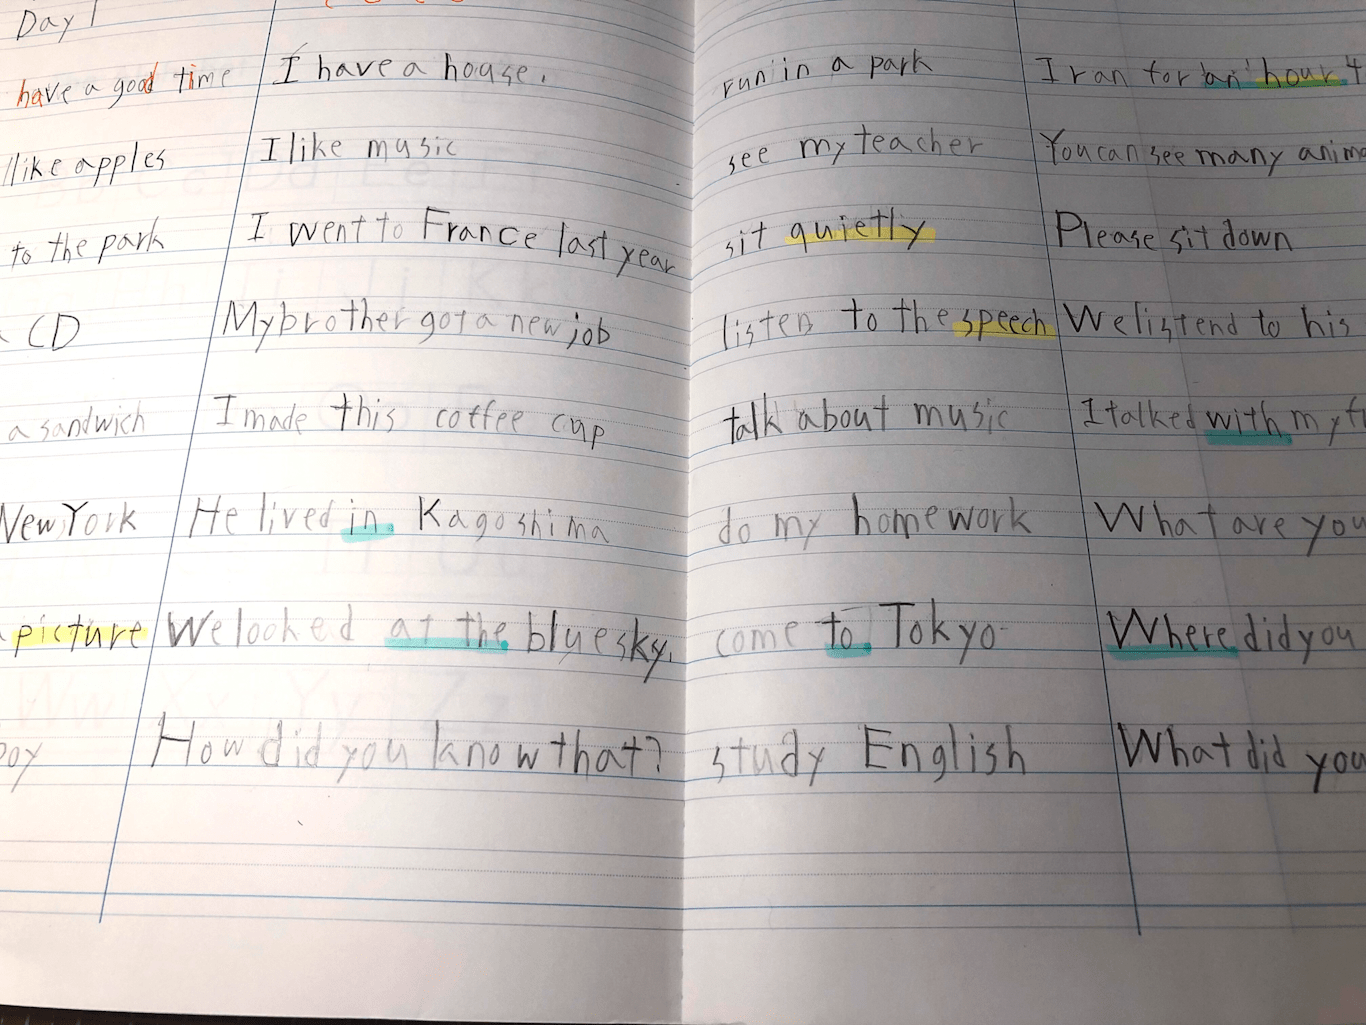 Day 1
have a good time I have a house.
like apples I like music
to the park I went to France last year
CD My brother got a new job
a sandwich I made this coffee cup
New York He lived in Kagoshima
picture We looked at the blue sky.
How did you know that?
run in a park I ran for an hour
see my teacher You can see many anima
sit quietly Please sit down
listen to the speech We listend to his
talk about music I talked with my f
do my homework What are you
come to Tokyo Where did you
study English What did you